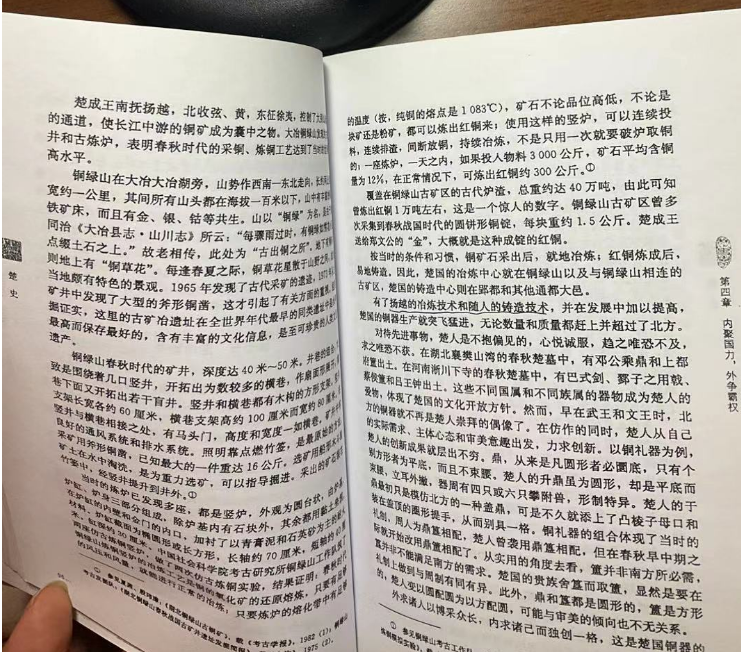 楚成王南抚扬越，北收弦、黄，东征徐夷，控制了
的通道，使长江中游的铜矿成为囊中之物。大冶铜绿山
井和古炼炉，表明春秋时代的采铜、炼铜工艺达到了
高水平。
铜绿山在大冶大冶湖旁，山势作西南—东北走向，
宽约一公里，其间所有山头都在海拔一百米以下，山中
铁矿床，而且有金、银、钴等共生。山以“铜绿”为名，
同治《大冶县志·山川志》所云：“每骤雨过时，有铜绿
点缀土石之上。”故老相传，此处为“古出铜之所”。地下
则地上有“铜草花”。每逢春夏之际，铜草花星散于山野之
当地颇有特色的景观。1965年发现了古代采矿的遗迹，
矿井中发现了大型的斧形铜凿，这才引起了有关方面的
掘证实，这里的古矿冶遗址在全世界年代最早的同类遗址中
最高而保存最好的，含有丰富的文化信息，是至可珍贵的人
遗产。
铜绿山春秋时代的矿井，深度达40米～50米。井巷的
致是围绕着几口竖井，开拓出为数较多的横巷，作扇面形
巷下面又开拓出若干盲井。竖井和横巷都有木构的方形支
支架长宽各约60厘米，横巷支架高约100厘米而宽约80厘米
竖井与横巷相接之处，有马头门，高度和宽度一如横巷。
良好的通风系统和排水系统。照明靠点燃竹签，是最原始的
采矿用斧形铜凿，已知最大的一件重达16公斤。选矿用船
矿土在水中淘洗，是为重力选矿，可以指导掘进。采出的矿石
竹篓中，经竖井提升到井外。①
当时的炼炉已发现多座，都是竖炉，外观为圆台状，由
炉缸、炉身三部分组成，除炉基内有石块外，其余都用
在炉缸的内壁和金门的内口，加衬了以青膏泥和石英砂为主的
材料。炉缸截面为椭圆形或长方形，长轴约70厘米，短轴约
米，缸深约30厘米。中国社会科学院考古研究所铜绿山工作队
两座仿古炼铜竖炉，做了两次仿古炼铜实验，结果证明，春秋时代
铜绿山炼铜竖炉的冶炼工艺是铜的氧化矿的还原熔炼，只要有
的风压和风量，就能进行正常的冶炼；只要炼炉的熔化带中有足够
楚 史
的温度（按，纯铜的熔点是1 083℃），矿石不论品位高低，不论是
块矿还是粉矿，都可以炼出红铜来；使用这样的竖炉，可以连续投
料，连续排渣，间断放铜，持续冶炼，不是只用一次就要破炉取铜
的；一座炼炉，一天之内，如果投入物料3 000公斤，矿石平均含铜
量为12%，在正常情况下，可炼出红铜约300公斤。①
覆盖在铜绿山古矿区的古代炉渣，总重约达40万吨，由此可知
曾炼出红铜1万吨左右，这是一个惊人的数字。铜绿山古矿区曾多
次采集到春秋战国时代的圆饼形铜锭，每块重约1.5公斤。楚成王
送给郑文公的“金”，大概就是这种成锭的红铜。
按当时的条件和习惯，铜矿石采出后，就地冶炼；红铜炼成后，
易地铸造。因此，楚国的冶炼中心就在铜绿山以及与铜绿山相连的
古矿区，楚国的铸造中心则在郢都和其他通都大邑。
有了扬越的冶炼技术和随人的铸造技术，并在发展中加以提高，
楚国的铜器生产就突飞猛进，无论数量和质量都赶上并超过了北方。
对待先进事物，楚人是不抱偏见的，心悦诚服，趋之唯恐不及，
求之唯恐不获。在湖北襄樊山湾的春秋楚墓中，有邓公乘鼎和上鄀
府簠出土。在河南淅川下寺的春秋楚墓中，有巴式剑、鄝子之用戟、
蔡侯簠和吕王钟出土。这些不同国属和不同族属的器物成为楚人的
殁物，体现了楚国的文化开放方针。然而，早在武王和文王时，北
方的铜器就不再是楚人崇拜的偶像了。在仿作的同时，楚人从自己
的实际需求、主体心态和审美意趣出发，力求创新。以铜礼器为例，
楚人的创新成果就层出不穷。鼎，从来是凡圆形者必圜底，只有个
别方形者为平底，而且不束腰。楚人的升鼎虽为圆形，却是平底而
束腰，立耳外撇，器周有四只或六只攀附兽，形制特异。楚人的于
鼎最初只是模仿北方的一种盖鼎，可是不久就添上了凸棱子母口和
装在盖顶的圆形提手，从而别具一格。铜礼器的组合体现了当时的
礼制，周人为鼎簋相配，楚人曾袭用鼎簋相配，但在春秋早中期之
际就开始改用鼎簠相配了。从实用的角度去看，簠并非南方所必需，
簋并非不能满足南方的需求。楚国的贵族舍簋而取簠，显然是要在
礼制上做到与周制有同有异。此外，鼎和簋都是圆形的，簠是方形
的，楚人变以圆配圆为以方配圆，可能与审美的倾向也不无关系。
外求诸人以博采众长，内求诸己而独创一格，这是楚国铜器的
第四章 内聚国力，外争霸权